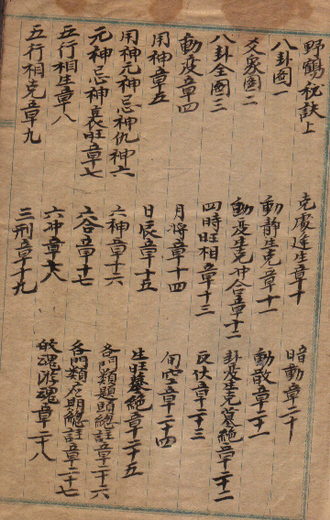 野鶴秘訣上
八卦圖一
爻象圖二
八卦全圖三
動變章四
用神章五
用神元神忌神仇神六
元神忌神衰旺章七
五行相生章八
五行相克章九
克處逢生章十
動靜生克章十一
動變生克冲合章十二
四時旺相章十三
月將章十四
日辰章十五
六神章十六
六合章十七
六冲章十八
三刑章十九
暗動章二十
動散章二十一
卦變生克墓絕章二十二
反伏章二十三
旬空章二十四
生旺墓絕章二十五
各門類題頭總註章二十六
各門類應期總註章二十七
魂游魂章二十八